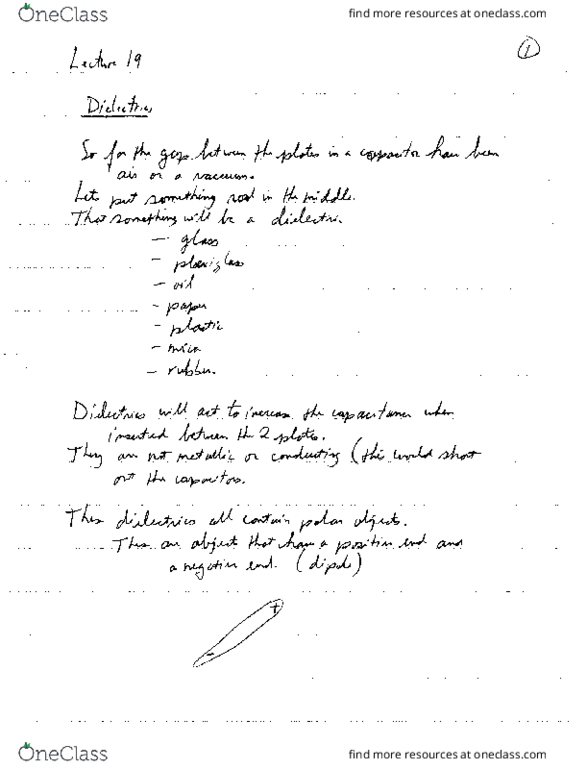 OneClass
find more resources at oneclass.com
1
Lecture 19
Dielectrics
So for the gap between the plates in a capacitor have been
air or a vacuum.
Lets put something
in the middle.
That something will be a dielectric.
- glass
- plexiglass
- oil
- paper
- plastic
- mica
- rubber.
Dielectrics will act to increase the capacitance when
inserted between the 2 plates.
They are not metallic or conducting (this would short
out the capacitors.
These dielectrics all contain polar objects.
These are object that have a positive end and
a negative end. (dipole)
+
-
OneClass
find more resources at oneclass.com